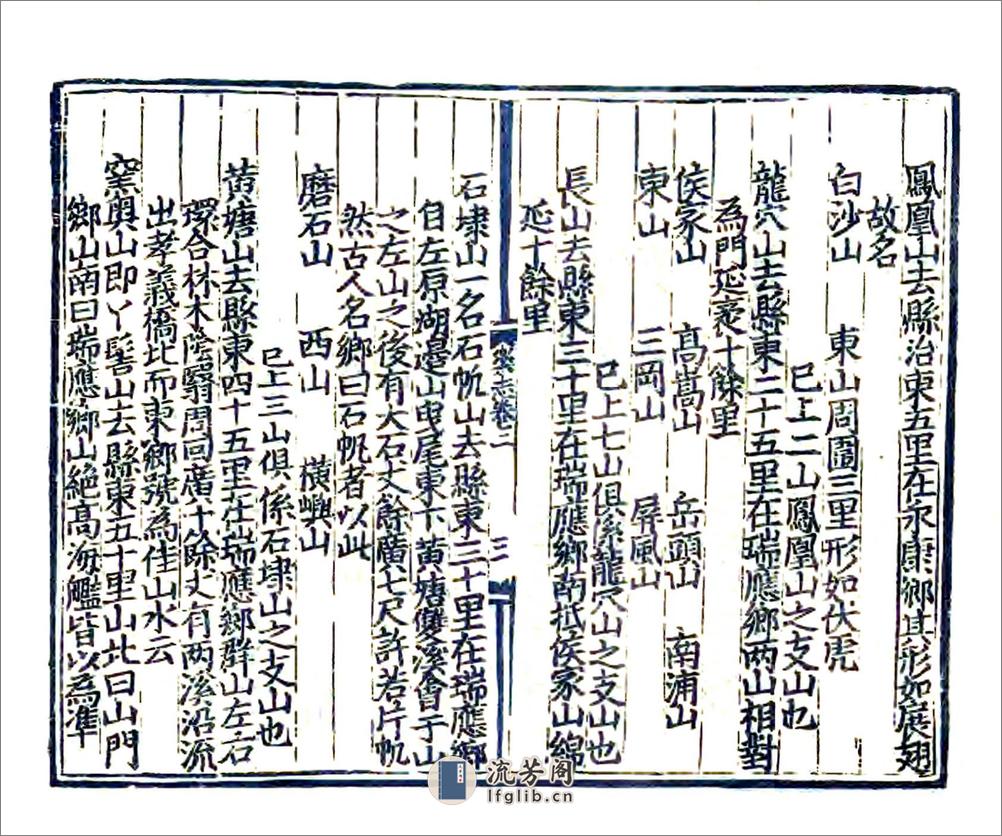 鳳凰山去縣治東五里在永康鄉其形如展翅
故名
白沙山 東山周圍三里形如伏虎
已上二山鳳凰山之支山也
龍穴山去縣東二十五里在瑞應鄉两山相對
為門延袤十餘里
侯家山 高嵩山 岳頭山 南浦山
東山 三岡山 屏風山
已上七山俱係龍穴山之支山也
長山去縣東三十里在瑞應鄉南抵侯家山綿
延十餘里
志卷二 三
石埭山一名石帆山去縣東三十里在瑞應鄉
自左原湖邉山曳尾東下黄塘雙溪會于山
之左山之後有大石丈餘廣七尺許若片帆
然古人名鄉曰石帆者以此
磨石山 西山 橫嶼山
已上三山俱係石埭山之支山也
黄塘山去縣東四十五里在瑞應鄉群山左右
環合林木陰翳周囘廣十餘丈有两溪沿流
出孝義橋北而東鄉號為佳山水云
窑奥山即丫髻山去縣東五十里山北曰山門
鄉山南曰瑞應鄉山絶高海艦皆以為準
流芳阁
lfglib.cn